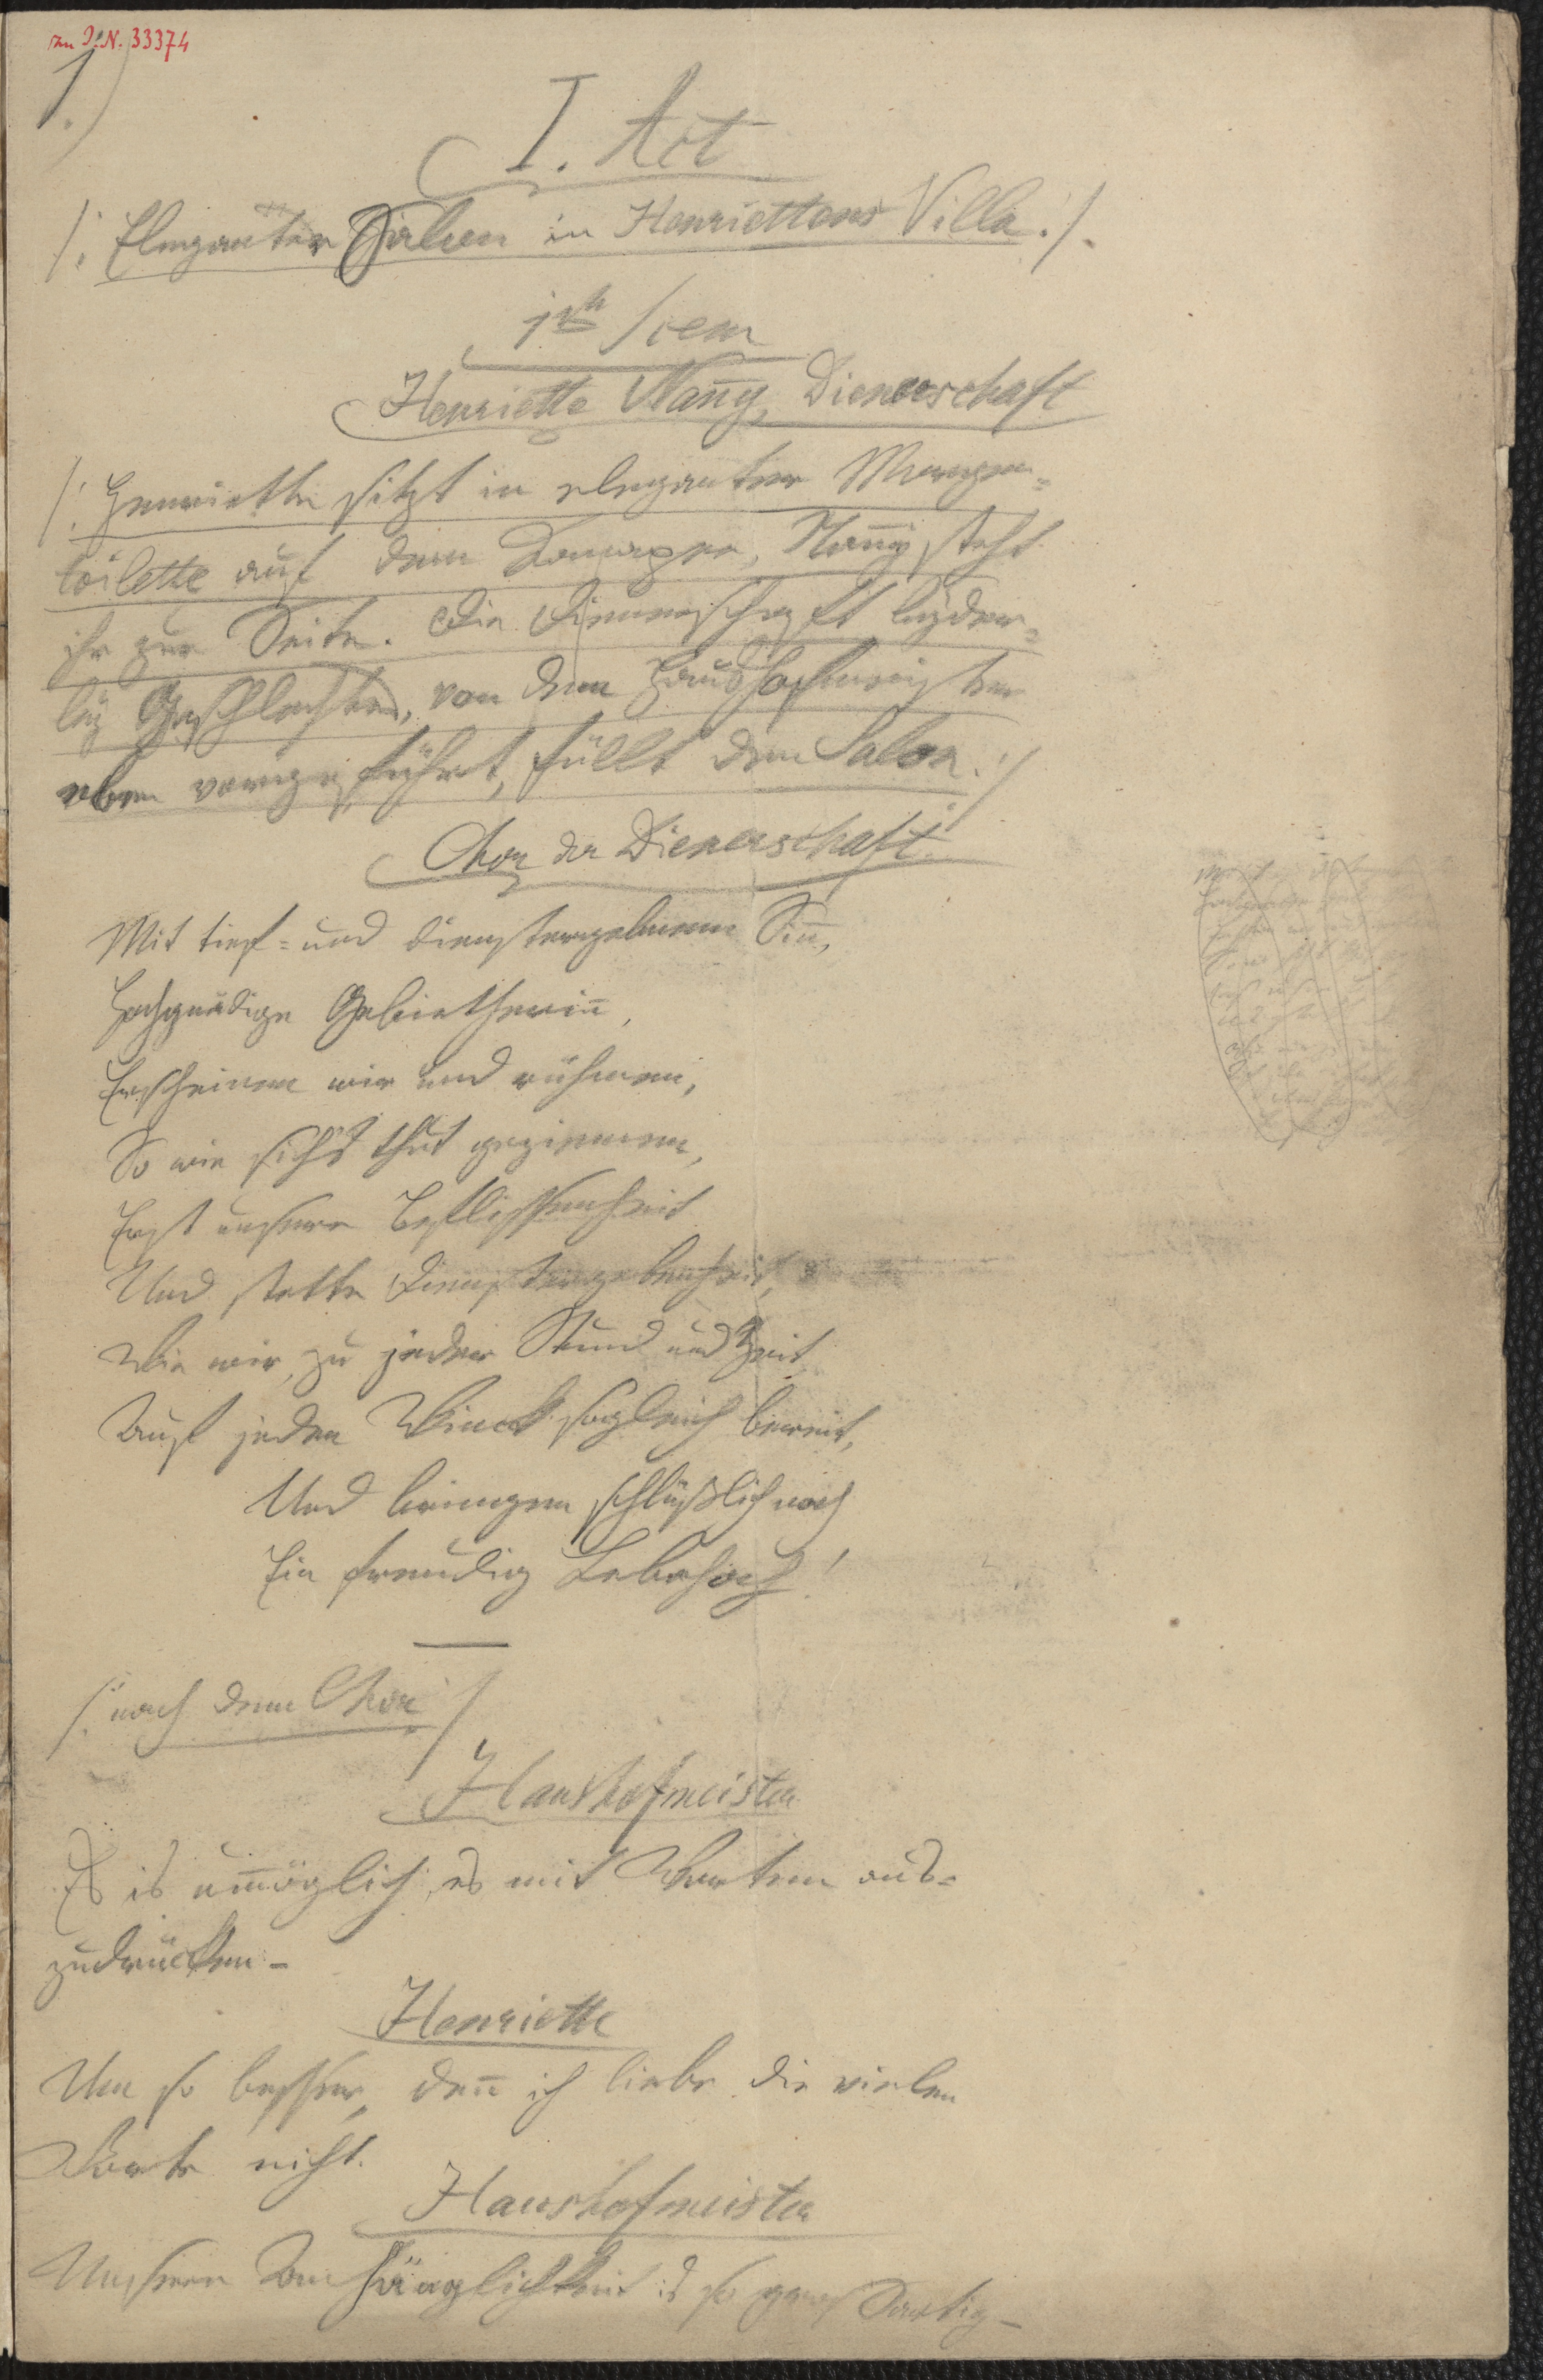 zu I.N. 33374
1.)
I. Act
/: Eleganter Salon in Henriettens Villa. :/
1te Scene
Henriette Nan̄y, Dienerschaft
/: Henriette sitzt in eleganter Morgen=
toilette auf dem Canapee, Nan̄y steht
ihr zur Seite. Die Dienerschaft beyder=
ley Geschlechts, von dem Haushofmeister
eben vorgeführt, füllt den Salon. :/
Chor der Dienerschaft.
Mit tief= und dienstergebenem Sin̄,
Hochgnädige Gebietherin̄,
Erscheinen wir und rühmen,
So wie sich's thut geziemen,
Erst unsere Beflissenheit
Und stette Dienstergebenheit,
Wie wir, zu jeder Stund und Zeit
Auf jeden Winck sogleich bereit,
Und bringen schlüßlich noch
Ein freudig Lebehoch!
/: nach dem Chor :/
Haushofmeister
Es is un̄möglich, es mit Worten aus=
zudrücken –
Henriette
Um so besser, den̄ ich liebe die vielen
Worte nicht.
Haushofmeister
Unsere Anhänglichkeit is so großartig –